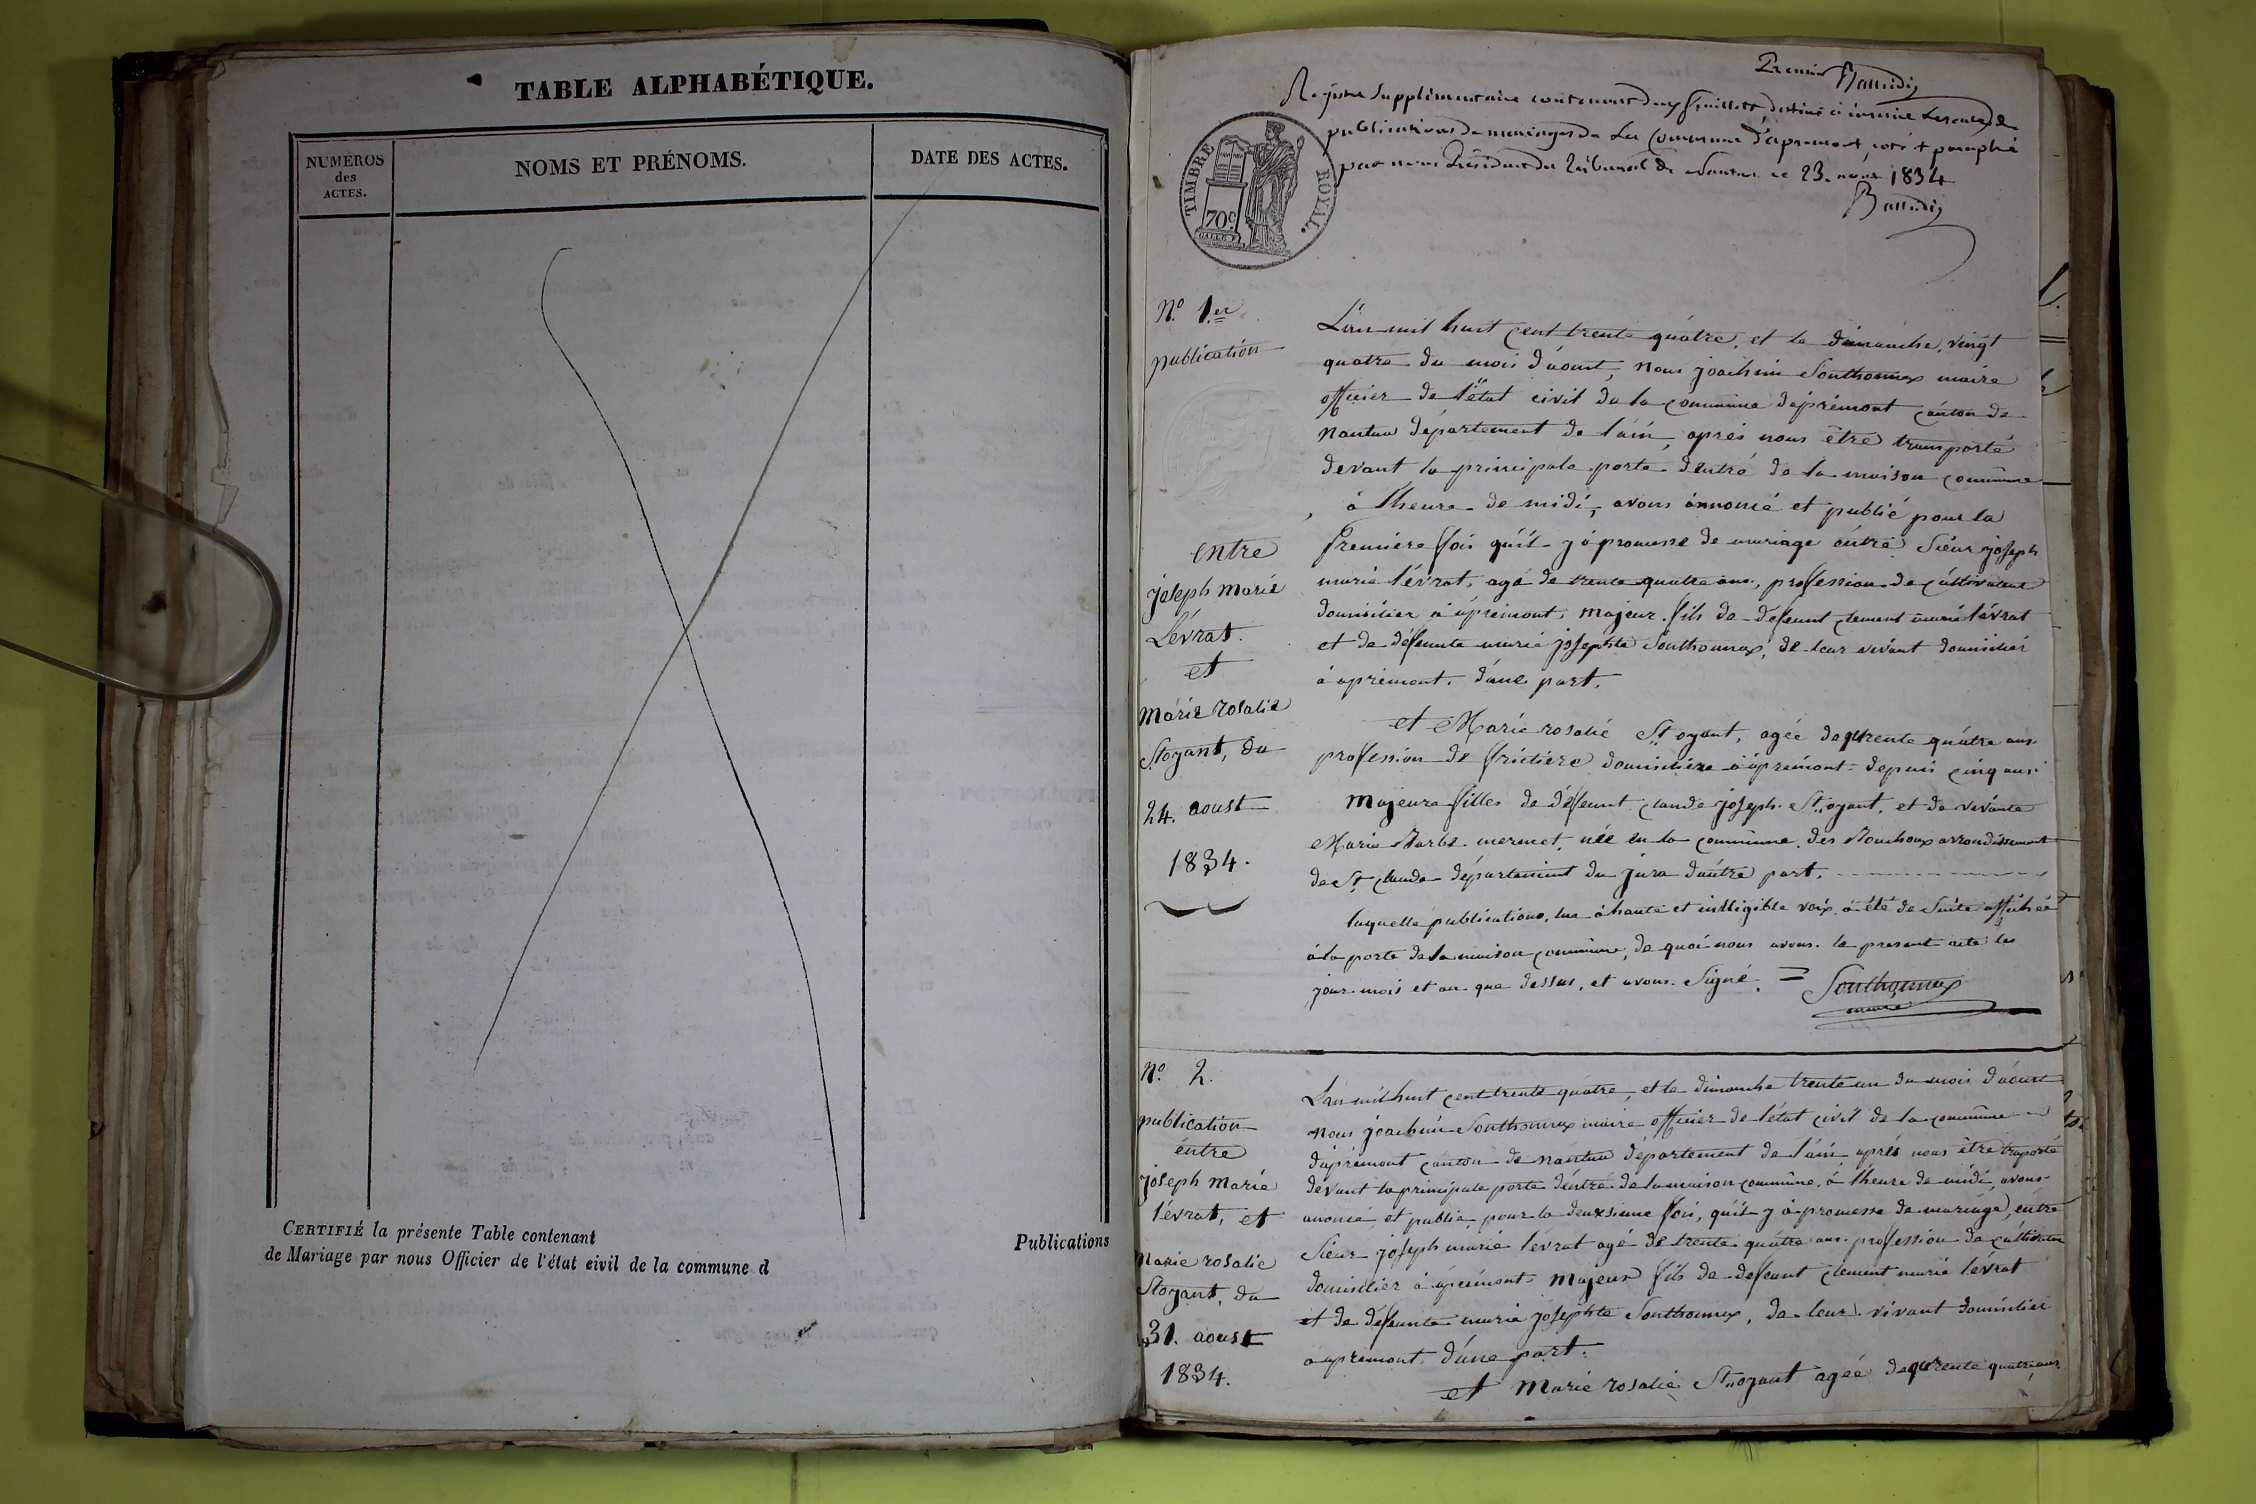 TABLE ALPHABÉTIQUE.
NUMÉROS
des
ACTES.
NOMS ET PRÉNOMS.
DATE DES ACTES.
CERTIFIÉ la présente Table contenant
Publications
de Mariage par nous Officier de l'état civil de la commune d
Premier
Registre Supplémentaire contenant deux feuillets, destiné à inscrire les actes de
publications de mariages de la Commune d'apremont, coté & paraphé
par nous Président du Tribunal de Nantua le 23. 1834
TIMBRE
ROYAL.
70c
N.º 1.er
publication
entre
joseph marie
Lévrat.
et
marie rosalie
St.oyant, du
24. aoust
1834.
L'an mil huit cent trente quátre, et le dimanche, vingt
quatre du mois d'áoust, Nous joachim Sonthonnax maire
officier de l'état civil de la commune dáprémont cánton de
Nantua département de l'áin, áprés nous être transporté
devant la principale porte d'entré de la maison commune
à l'heure de midi, avons ánnoncé et publié pour la
Premiére fois qu'il y á promesse de mariage éntre Sieur joseph
marie lévrat, agé de trente quatre ans, profession de cúltivateur
domicilier á áprémont, majeur fils de defeunt clement marie lévrat
et de défeunte marie josephte Sonthonnax, de leur vivant domicilier
á aprémont, d'úne part.
et Marie rosalié St. oyant, agée de qurente quátre ans
profession de fruitière domiciliére á áprémont depuis cinq ans
Majeure filles de défeunt claude joseph St. oyant, et de vivánte
Marie Barbe mermet, née en la commune des Bouchoux arrondissement
de St claude département du jura d'aútre part.
laquelle publications, lue á haute et intligible voix, á été de suite affichée
á la porte de la maison commune, de quoi nous avons le present acte les
jour mois et an que dessus, et avons Signé. = Sonthonnax
maire
N.º 2.
publication
éntre
joseph marie
lévrat, et
Marie rosalie
St oyant, du
31. aoust
1834.
L'an mil huit cent trente quátre, et le dimanche trente un du mois d'áoust
Nous joachim Sonthonnax maire officier de l'état civil de la commune
dáprémont cánton de Nantua département de l'áin áprés nous être traporté
devant la principale porte d'éntré de la maison commune, á l'heure de midi, avons
anoncé et publié, pour la deuxsieme fois, qu'il y á promesse de mariage, éntre
Sieur joseph marie levrat agé de trente quátre ans profession de cúltivateur
domicilier á áprémont, Majeur fils de defeunt clement marie levrat
et de défeunte marie josephte Sonthonnax, de leur vivant domicilier
á aprémont. d'úne part.
et marie rosalie St. oyant agée de qurente quatre ans